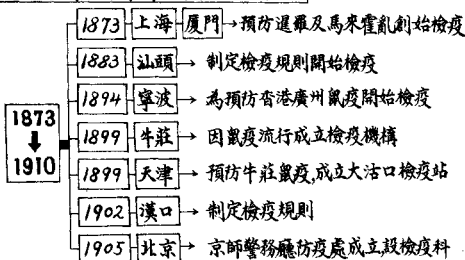 1873 上海 厦門 → 預防暹羅及馬來霍亂創始檢疫
1883 汕頭 → 制定檢疫規則開始檢疫
1894 寧波 → 為預防香港廣州鼠疫開始檢疫
1873
↓
1910
1899 牛莊 → 因鼠疫流行成立檢疫機構
1899 天津 → 預防牛莊鼠疫,成立大沽口檢疫站
1902 漢口 → 制定檢疫規則
1905 北京 → 京師警務廳防疫處成立,設檢疫科